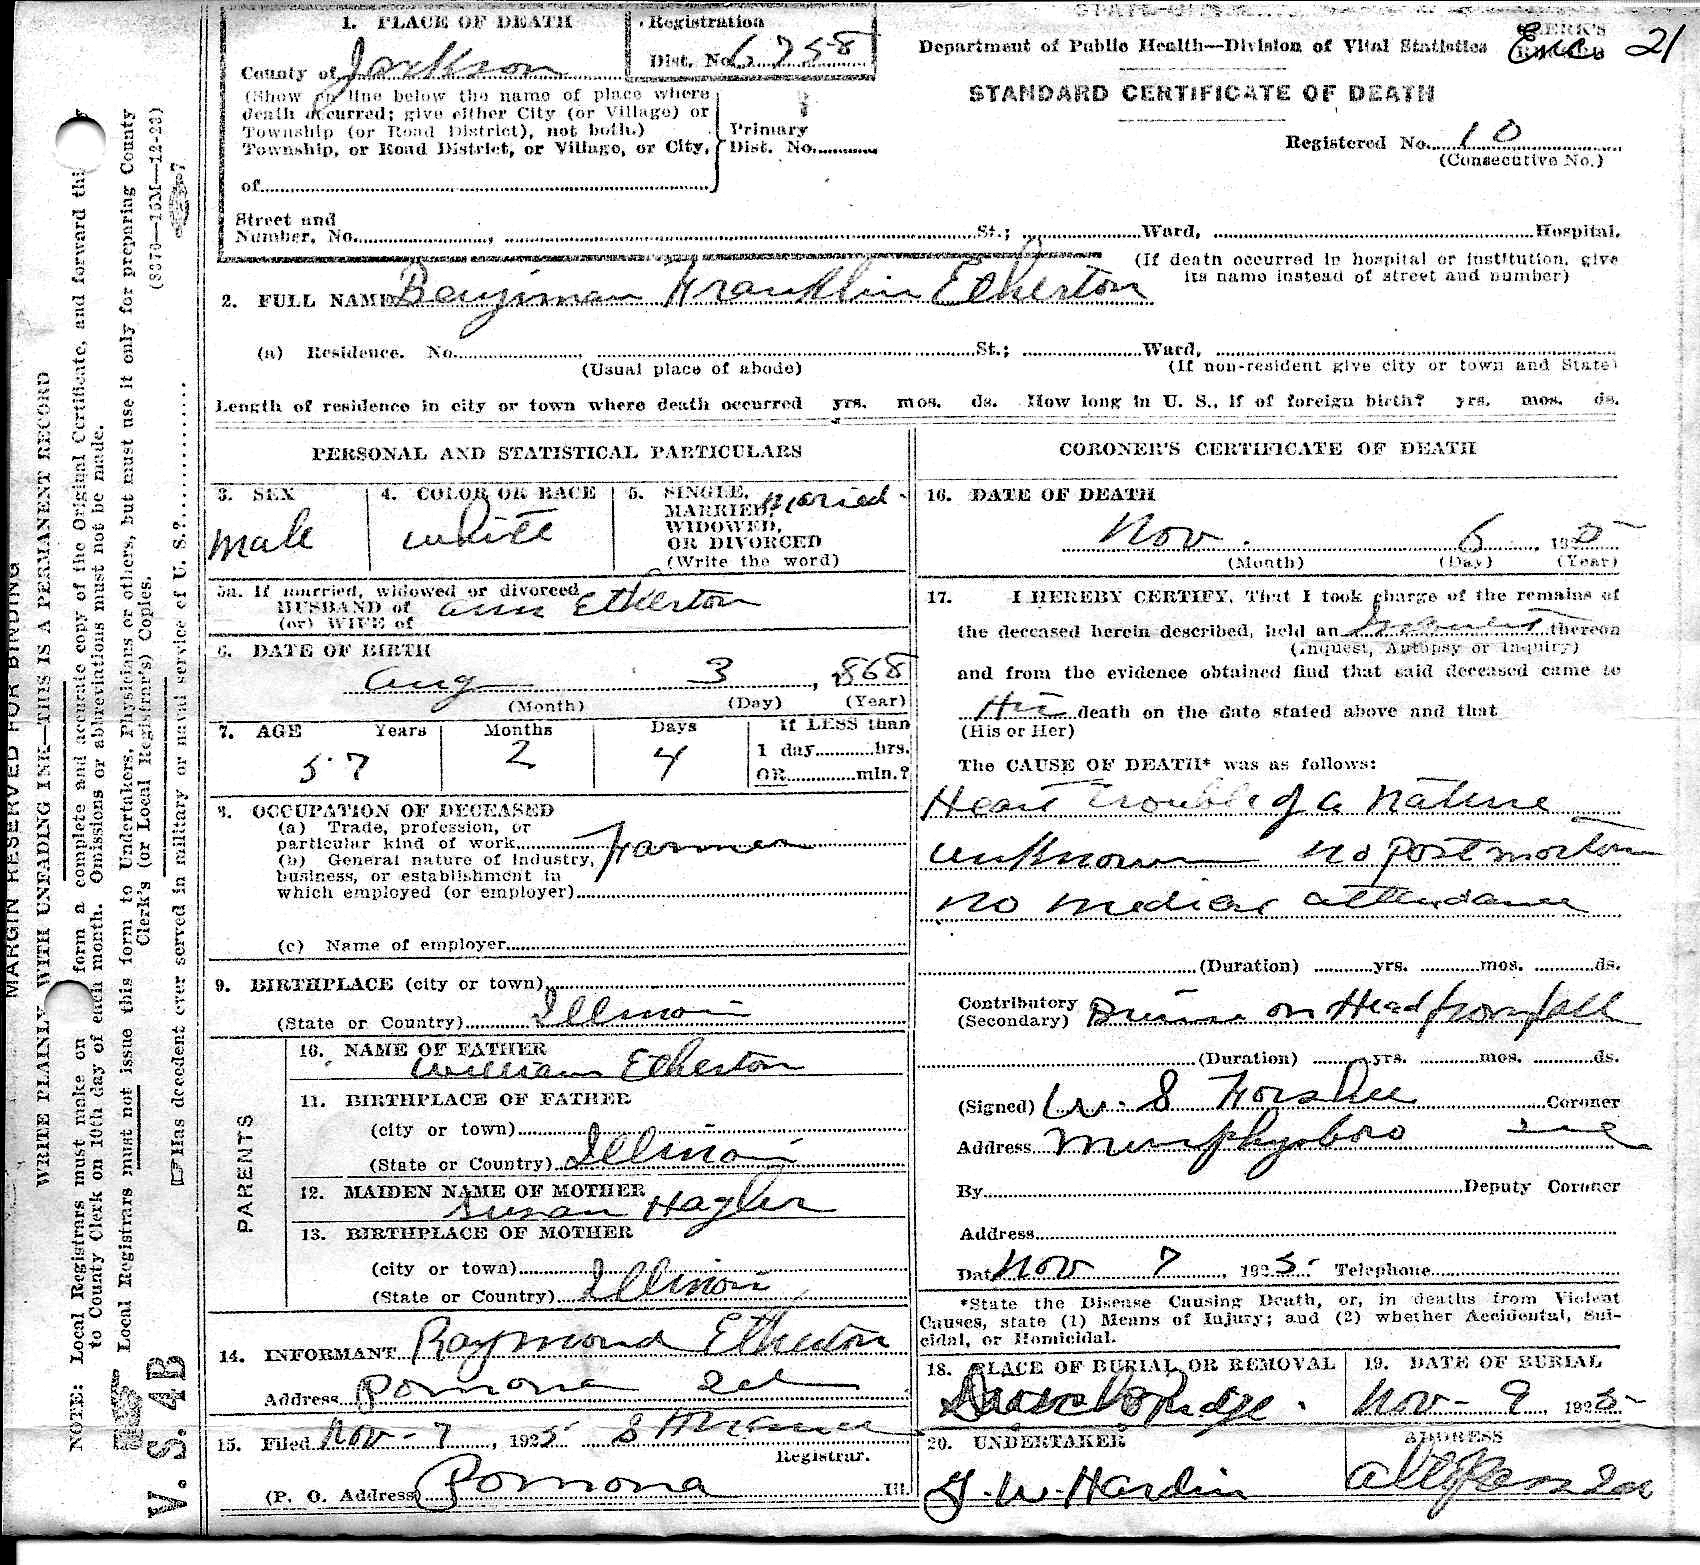 1. PLACE OF DEATH
County of Jackson
Registration
Dist. No. 6758
(Show on line below the name of place where
death occurred; give either City (or Village) or
Township (or Road District), not both.)
Township, or Road District, or Village, or City,
Primary
Dist. No.
of
Street and
Number, No. , St.; Ward, Hospital.
(If death occurred in hospital or institution, give
its name instead of street and number)
Department of Public Health—Division of Vital Statistics
CLERK'S
21
STANDARD CERTIFICATE OF DEATH
Registered No. 10
(Consecutive No.)
2. FULL NAME Benjiman Franklin Etherton
(a) Residence. No. , St.; Ward,
(Usual place of abode) (If non-resident give city or town and State)
Length of residence in city or town where death occurred yrs. mos. ds. How long in U. S., if of foreign birth? yrs. mos. ds.
PERSONAL AND STATISTICAL PARTICULARS
3. SEX
Male
4. COLOR OR RACE
White
5. SINGLE,
MARRIED,
WIDOWED,
OR DIVORCED
(Write the word)
Maried
5a. If married, widowed or divorced
HUSBAND of
(or) WIFE of
Ann Etherton
6. DATE OF BIRTH
Aug 3, 1868
(Month) (Day) (Year)
7. AGE Years Months Days If LESS than
57 2 4
1 day hrs.
OR min.?
8. OCCUPATION OF DECEASED
(a) Trade, profession, or
particular kind of work Farmer
(b) General nature of industry,
business, or establishment in
which employed (or employer)
(c) Name of employer
9. BIRTHPLACE (city or town)
(State or Country) Illinois
PARENTS
10. NAME OF FATHER
William Etherton
11. BIRTHPLACE OF FATHER
(city or town)
(State or Country) Illinois
12. MAIDEN NAME OF MOTHER
Susan Hagler
13. BIRTHPLACE OF MOTHER
(city or town)
(State or Country) Illinois
14. INFORMANT Raymond Etherton
Address Pomona Ill
15. Filed Nov - 7, 1925
Registrar.
(P. O. Address) Pomona Ill.
CORONER'S CERTIFICATE OF DEATH
16. DATE OF DEATH
Nov. 6, 1925
(Month) (Day) (Year)
17. I HEREBY CERTIFY, That I took charge of the remains of
the deceased herein described, held an Inquest thereon
(Inquest, Autopsy or Inquiry)
and from the evidence obtained find that said deceased came to
His death on the date stated above and that
(His or Her)
The CAUSE OF DEATH* was as follows:
Heart trouble of a nature
unknown no postmortem
no medical attendance
(Duration) yrs. mos. ds.
Contributory
(Secondary)
Bruise on Head from fall
(Duration) yrs. mos. ds.
(Signed) W. S Forshee Coroner
Address Murphysboro Ill
By Deputy Coroner
Address
Date Nov 7, 1925. Telephone
*State the Disease Causing Death, or, in deaths from Violent
Causes, state (1) Means of Injury; and (2) whether Accidental, Sui-
cidal, or Homicidal.
18. PLACE OF BURIAL OR REMOVAL
Ridge.
19. DATE OF BURIAL
Nov - 9, 1925
20. UNDERTAKER
ADDRESS
J. W. Hardin
Alto Pass Ill
MARGIN RESERVED FOR BINDING
WRITE PLAINLY WITH UNFADING INK—THIS IS A PERMANENT RECORD
NOTE: Local Registrars must make on form a complete and accurate copy of the Original Certificate, and forward
to County Clerk on 10th day of each month. Omissions or abbreviations must not be made.
Local Registrars must not issue this form to Undertakers, Physicians or others, but must use it only for preparing County
Clerk's (or Local Registrar's) Copies.
(8370—15M—12-23) 7
Has decedent ever served in military or naval service of U. S.?
V. S. 4B